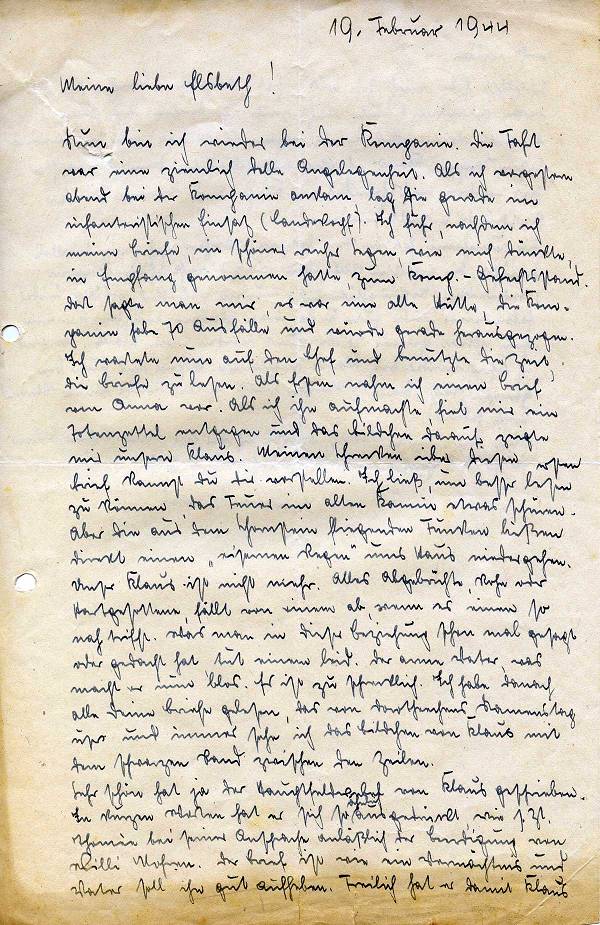 19. Februar 1944
Meine liebe Elsbeth!
Nun bin ich wieder bei der Kompanie. Die Fahrt
war eine ziemlich tolle Angelegenheit. Als ich vorgestern
abend bei der Kompanie ankam, lag sie gerade im
infanteristischen Einsatz. Ich fuhr, nachdem ich
meine Briefe, ein schöner reicher Segen, wie mich dünkte,
in Empfang genommen hatte, zum Komp.-Gefechtsstand.
Dort sagte man mir, es war eine alte Hütte, die Kom-
panie habe 70 Ausfälle und würde gerade herausgezogen.
Ich wartete nun auf den Chef und benutzte die Zeit,
die Briefe zu lesen. Als Ersten nahm ich einen Brief
von Anna vor. Als ich ihn aufmachte fiel mir ein
Totenzettel entgegen und das Bildchen darauf zeigte
mir unsern Klaus. Meinen Schrecken über diesen ersten
Brief kannst Du Dir vorstellen. Ich ließ, um besser lesen
zu können das Feuer im alten Kamin etwas schüren.
Aber die aus dem Schornstein fliegenden Funken ließen
direkt einen „eisernen Regen" ums Haus niedergehen.
Unser Klaus ist nicht mehr. Alles Abgebrühte, Rohe oder
Hartgesottene, fällt von einem ab, wenn es einem so
nah trifft. Was man in dieser Beziehung schon mal gesagt
oder gedacht hat tut einem leid. Der arme Vater, was
macht er nun blos. Es ist zu schrecklich. Ich habe danach
alle Deine Briefe gelesen, das von Dorothenchens Namenstag
usw. und immer sehe ich das Bildchen von Klaus mit
dem schwarzen Rand zwischen den Zeilen.
Sehr schön hat ja der von Klaus geschrieben.
In kurzen Worten hat er sich so ausgedrückt wie s. Zt.
bei seiner Ansprache anläßlich der Beerdigung von
Willi. Der Brief ist wie ein Vermächtnis und
Vater soll ihn gut aufheben. Freilich hat er damit Klaus